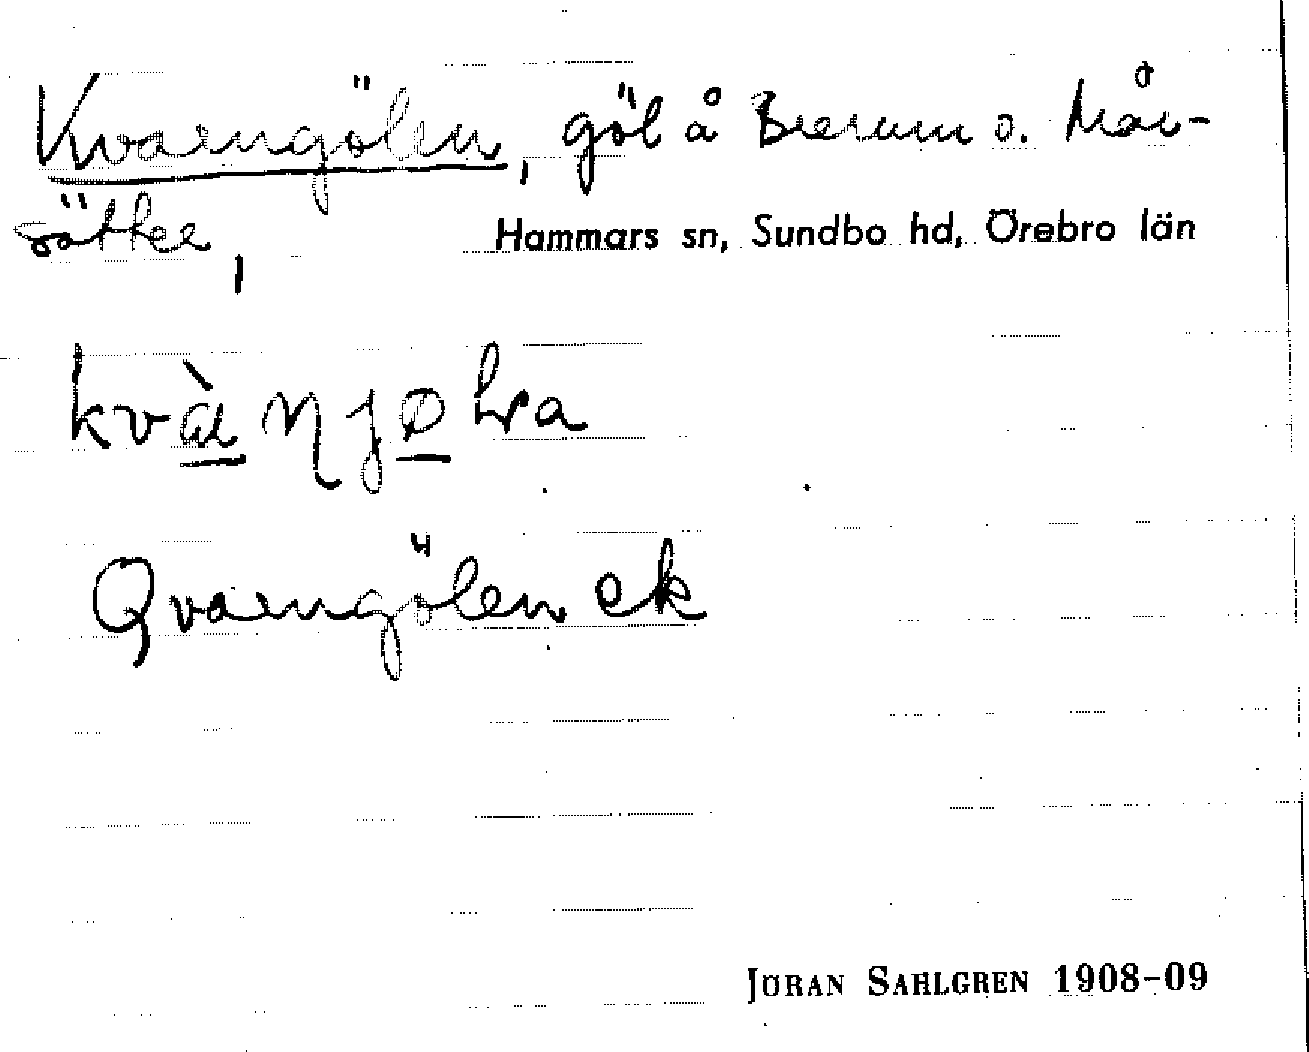 Kvarngölen, göl å Brerum o. Mår-
sätter,
Hammars sn, Sundbo hd, Örebro län
Qvarngölen ek
JÖRAN SAHLGREN 1908-09